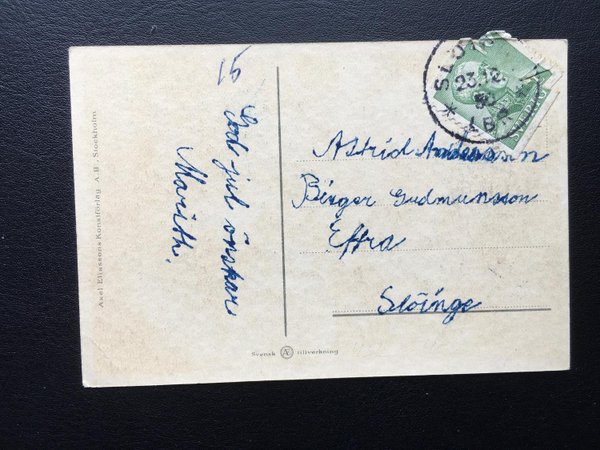 Axel Eliassons Konstförlag A.B. Stockholm
God jul önskar
Marith.
Astrid Andersson
Birger Gudmunsson
Eftra
Slöinge
23.12
Svensk Æ tillverkning